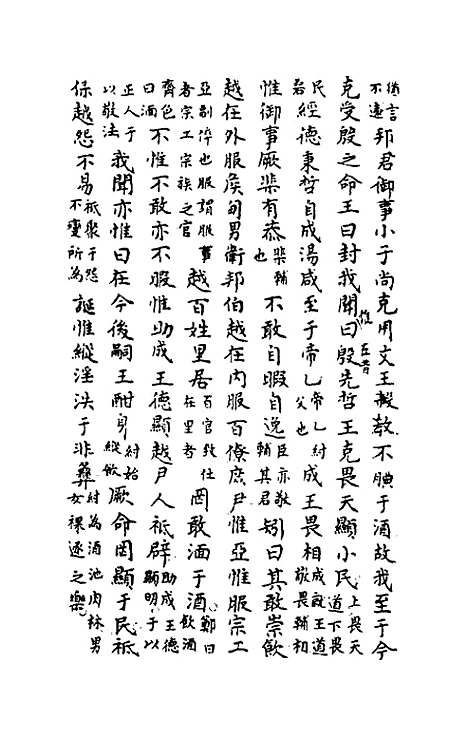 徃言不遠邦君御事小子尚克用文王教不腆于酒故我至于今
克受殷之命王曰封我聞惟曰在昔殷先哲王克畏天顯小民上畏天道下畏
民君經德秉哲自成湯咸至于帝乙帝乙紂父也成王畏相成政王道敬畏輔初
惟御事厥棐有恭棐輔也不敢自暇自逸臣亦敬輔其君矧曰其敢崇飲
越在外服侯甸男衛邦伯越在內服百僚庶尹惟亞惟服宗工
亞副倅也服謂服事者宗工宗族之官越百姓里居百官致仕在里者罔敢湎于酒鄭曰飲酒
齊色曰湎不惟不敢亦不暇惟助成王德顯越尹人祗辟助成王德顯明于以
正人于以敬法我聞亦惟曰在今後嗣王酣身紂始縱飲厥命罔顯于民祗
保越怨不易祗聚于怨不變所為誕惟縱淫泆于非彝紂為酒池肉林男女裸逐之樂